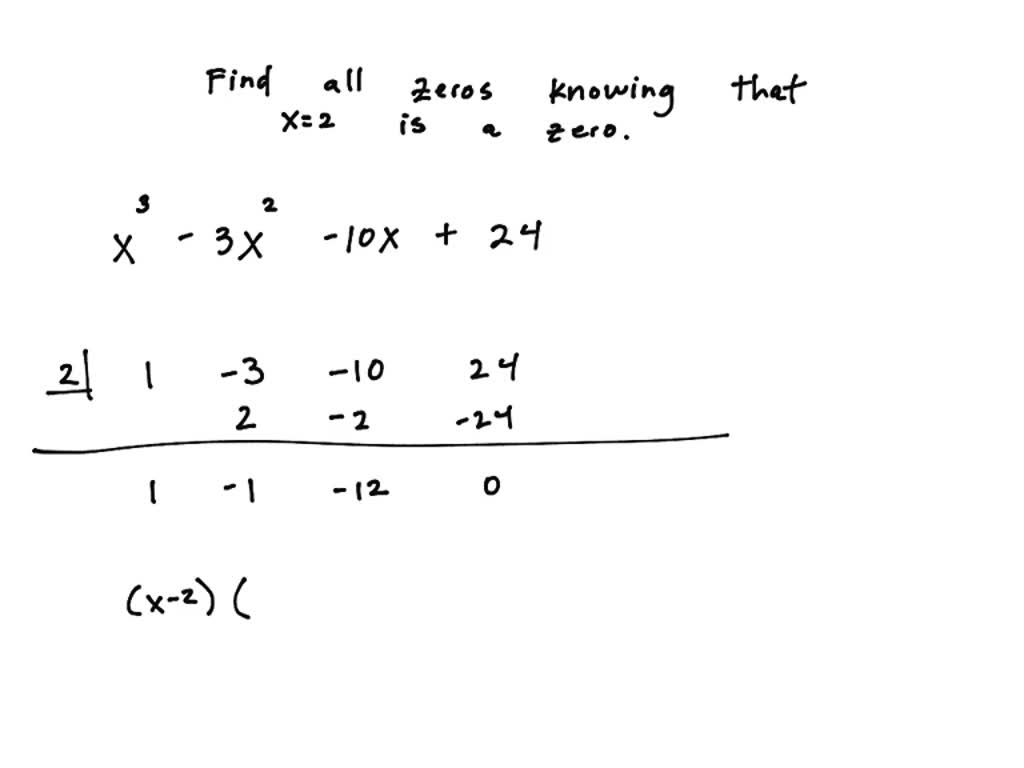 Find all zeros knowing that
x=2 is a zero.
x³ - 3x² -10x + 24
2| 1 -3 -10 24
2 -2 -24
1 -1 -12 0
(x-2) (